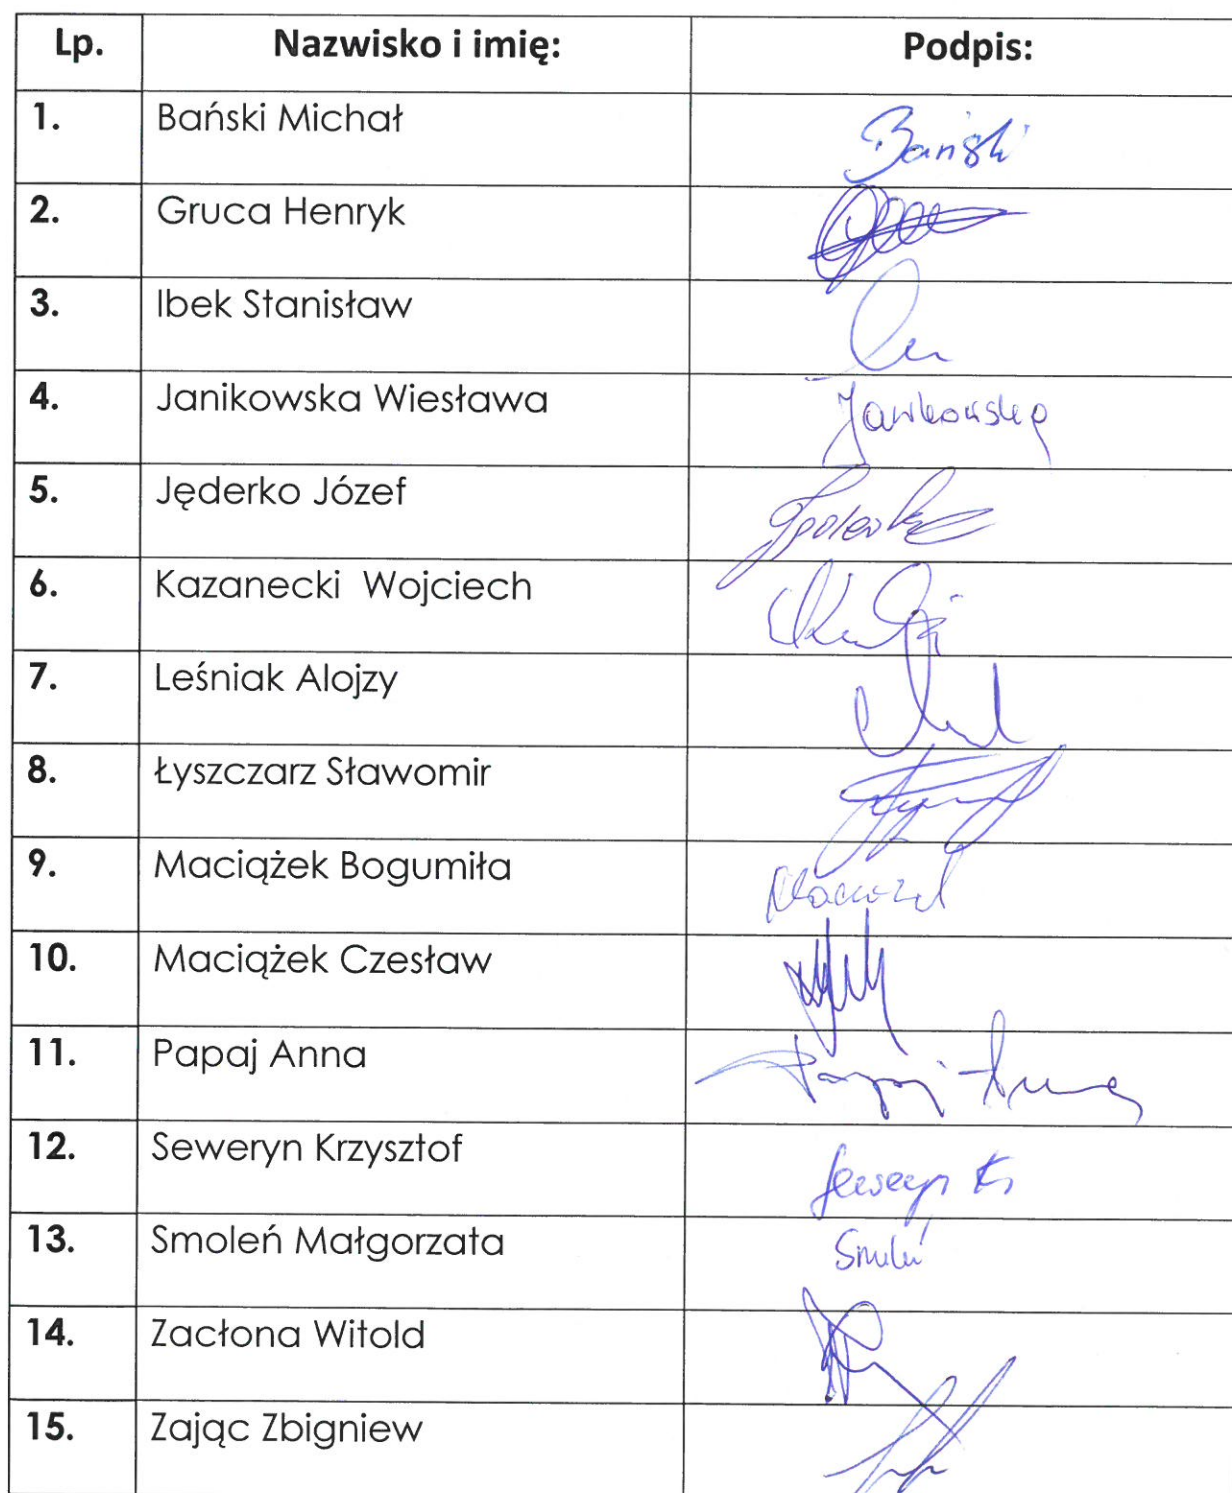 Lp. Nazwisko i imię: Podpis:
1. Bański Michał Bański
2. Gruca Henryk
3. Ibek Stanisław
4. Janikowska Wiesława
5. Jęderko Józef
6. Kazanecki Wojciech
7. Leśniak Alojzy
8. Łyszczarz Sławomir
9. Maciążek Bogumiła
10. Maciążek Czesław
11. Papaj Anna Papaj Anna
12. Seweryn Krzysztof
13. Smoleń Małgorzata Smoleń
14. Zacłona Witold
15. Zając Zbigniew